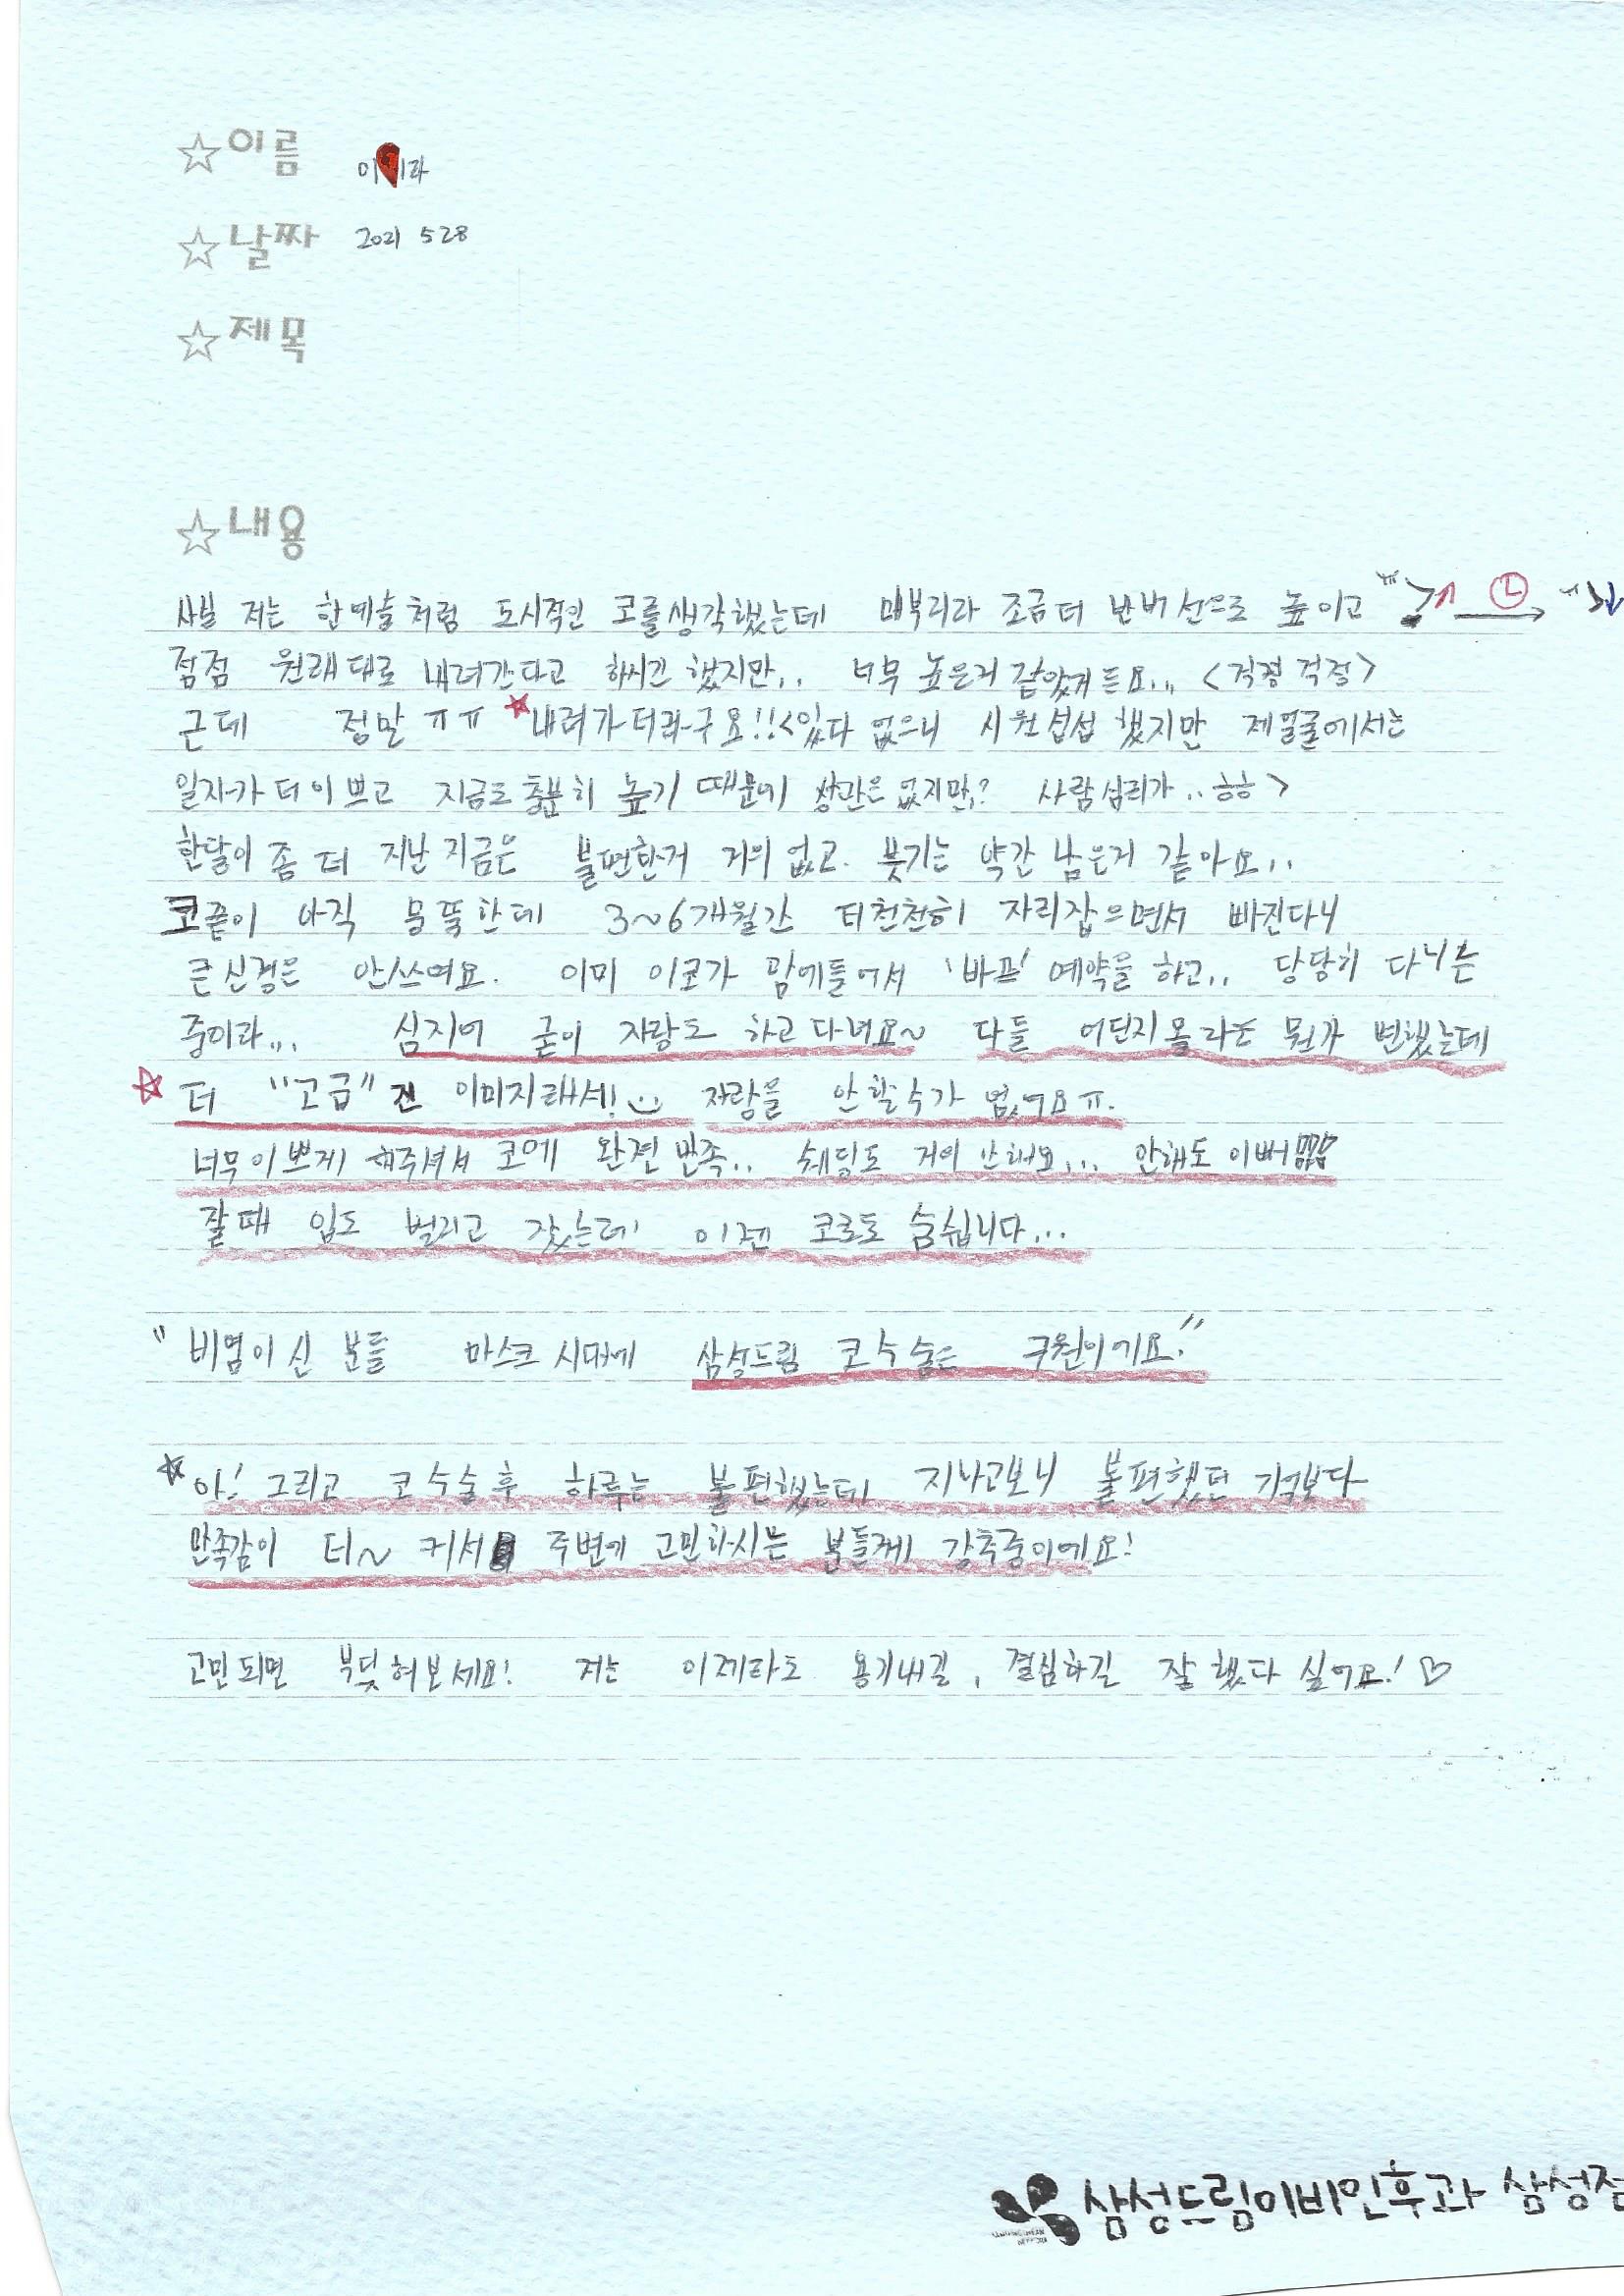 ☆이름 이 라
☆날짜 2021 5 28
☆제목
☆내용
사실 저는 한예슬처럼 도시적인 코를생각했는데 매부리라 조금더 반버선으로 높이고
점점 원래대로 내려간다고 하시긴 했지만.. 너무 높은거 같았거든요... <걱정 걱정>
근데 정말 ㅠㅠ ☆내려가더라구요!!<있다 없으니 시원섭섭 했지만 제얼굴에서는
일자가 더 이쁘고 지금도 충분히 높기 때문에 상관은 없지만,? 사람심리가..ㅎㅎ>
한달이 좀 더 지난 지금은 불편한거 거의 없고. 붓기는 약간 남은거 같아요..
코끝이 아직 뭉뚝한데 3~6개월간 더천천히 자리잡으면서 빠진다니
큰신경은 안쓰여요. 이미 이코가 맘에들어서 '바프' 예약을 하고.. 당당히 다니는
중이라... 심지어 굳이 자랑도 하고다녀요~ 다들 어딘지몰라도 뭔가 변했는데
☆ 더 "고급"진 이미지래서! 자랑을 안할수가 없어요ㅠ.
너무이쁘게 해주셔서 코에 완전만족.. 쉐딩도 거의 안해요... 안해도 이뻐
잘때 입도 벌리고 잤는데 이젠 코로도 숨쉽니다...
"비염이신 분들 마스크 시대에 삼성드림 코수술은 구원이에요!"
☆아! 그리고 코수술후 하루는 불편했는데 지나고보니 불편했던 기억보다
만족감이 더~ 커서 주변에 고민하시는 분들께 강추중이에요!
고민되면 부딪혀보세요! 저는 이제라도 용기내길, 결심하길 잘했다 싶어요! ♡
삼성드림이비인후과 삼성점